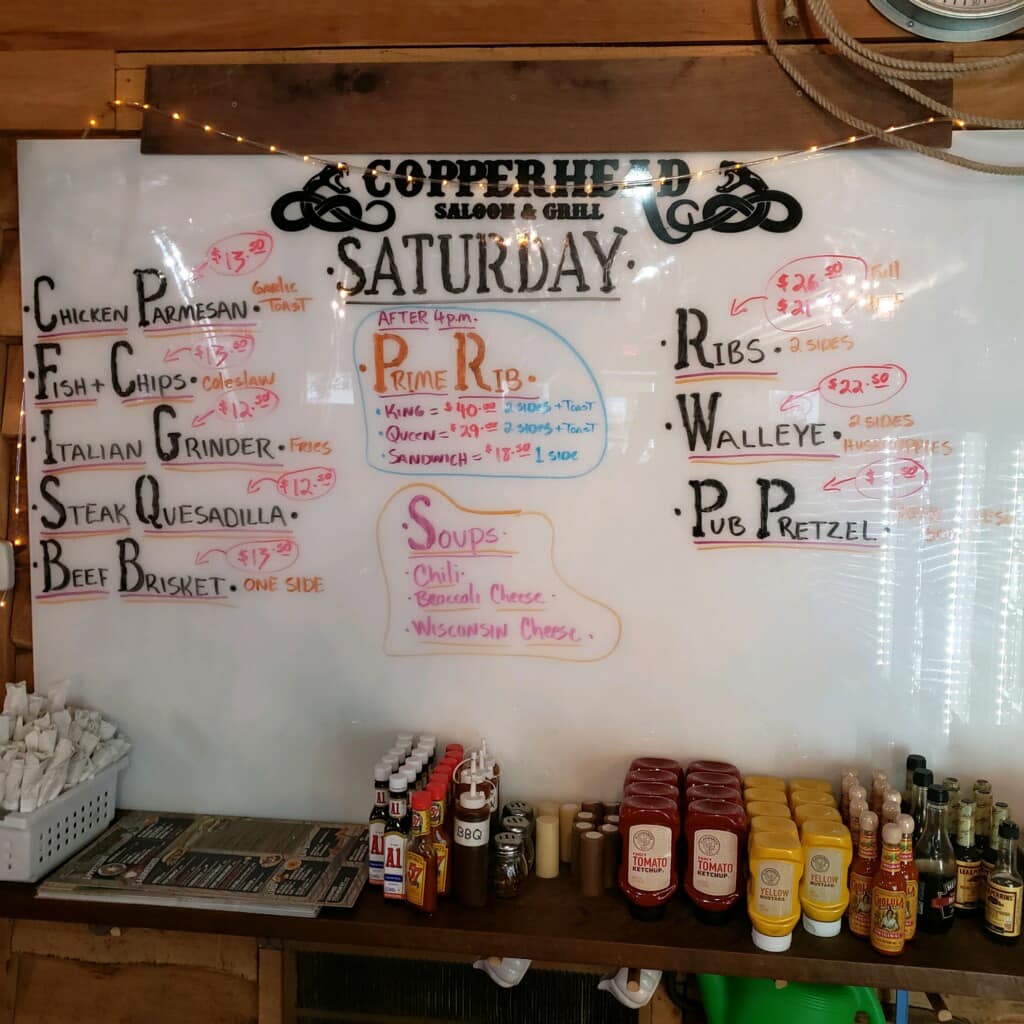 COPPERHEAD
SALOON & GRILL
·SATURDAY·
$13.50
CHICKEN PARMESAN · GARLIC TOAST
$13.50
FISH + CHIPS · Coleslaw
$12.50
ITALIAN GRINDER · FRIES
$12.50
STEAK QUESADILLA ·
$13.50
BEEF BRISKET · ONE SIDE
AFTER 4p.m.
· PRIME RIB ·
· KING = $40.00 2 SIDES + TOAST
· QUEEN = $29.00 2 SIDES + TOAST
· SANDWICH = $18.50 1 SIDE
· SOUPS ·
· Chili ·
· Broccoli Cheese ·
· WISCONSIN Cheese ·
$26.50 Full
$21
· RIBS · 2 SIDES
$22.50
· WALLEYE · 2 SIDES
· PUB PRETZEL ·
A1
A1
BBQ
TOMATO
KETCHUP
TOMATO
KETCHUP
YELLOW
MUSTARD
YELLOW
MUSTARD
CHOLULA